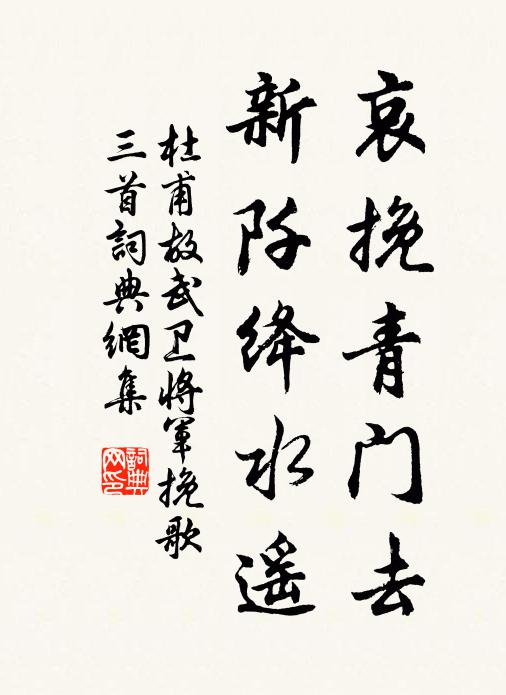 哀挽青门去
新阡绛水遥
杜甫故武卫将軍挽歌
三首詞典網集
詞典
网印